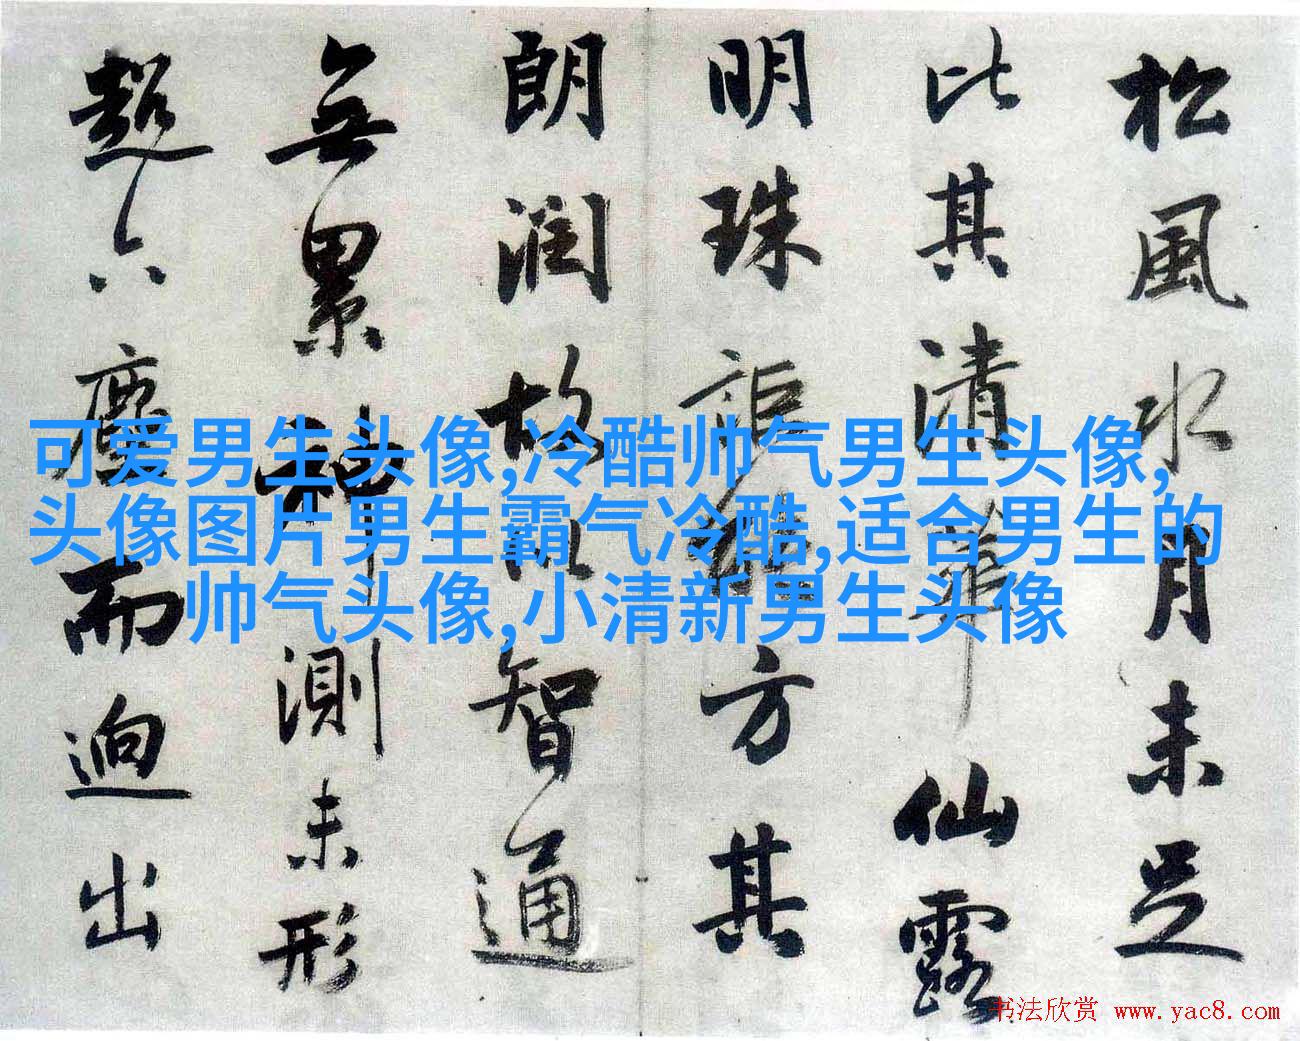 松風水月未足
比其清華仙露
明珠詎能方其
朗潤故以智通
無累神測未形
超六塵而迥出
可爱男生头像,冷酷帅气男生头像,
头像图片男生霸气冷酷,适合男生的
帅气头像,小清新男生头像
书法欣赏 www.yac8.com